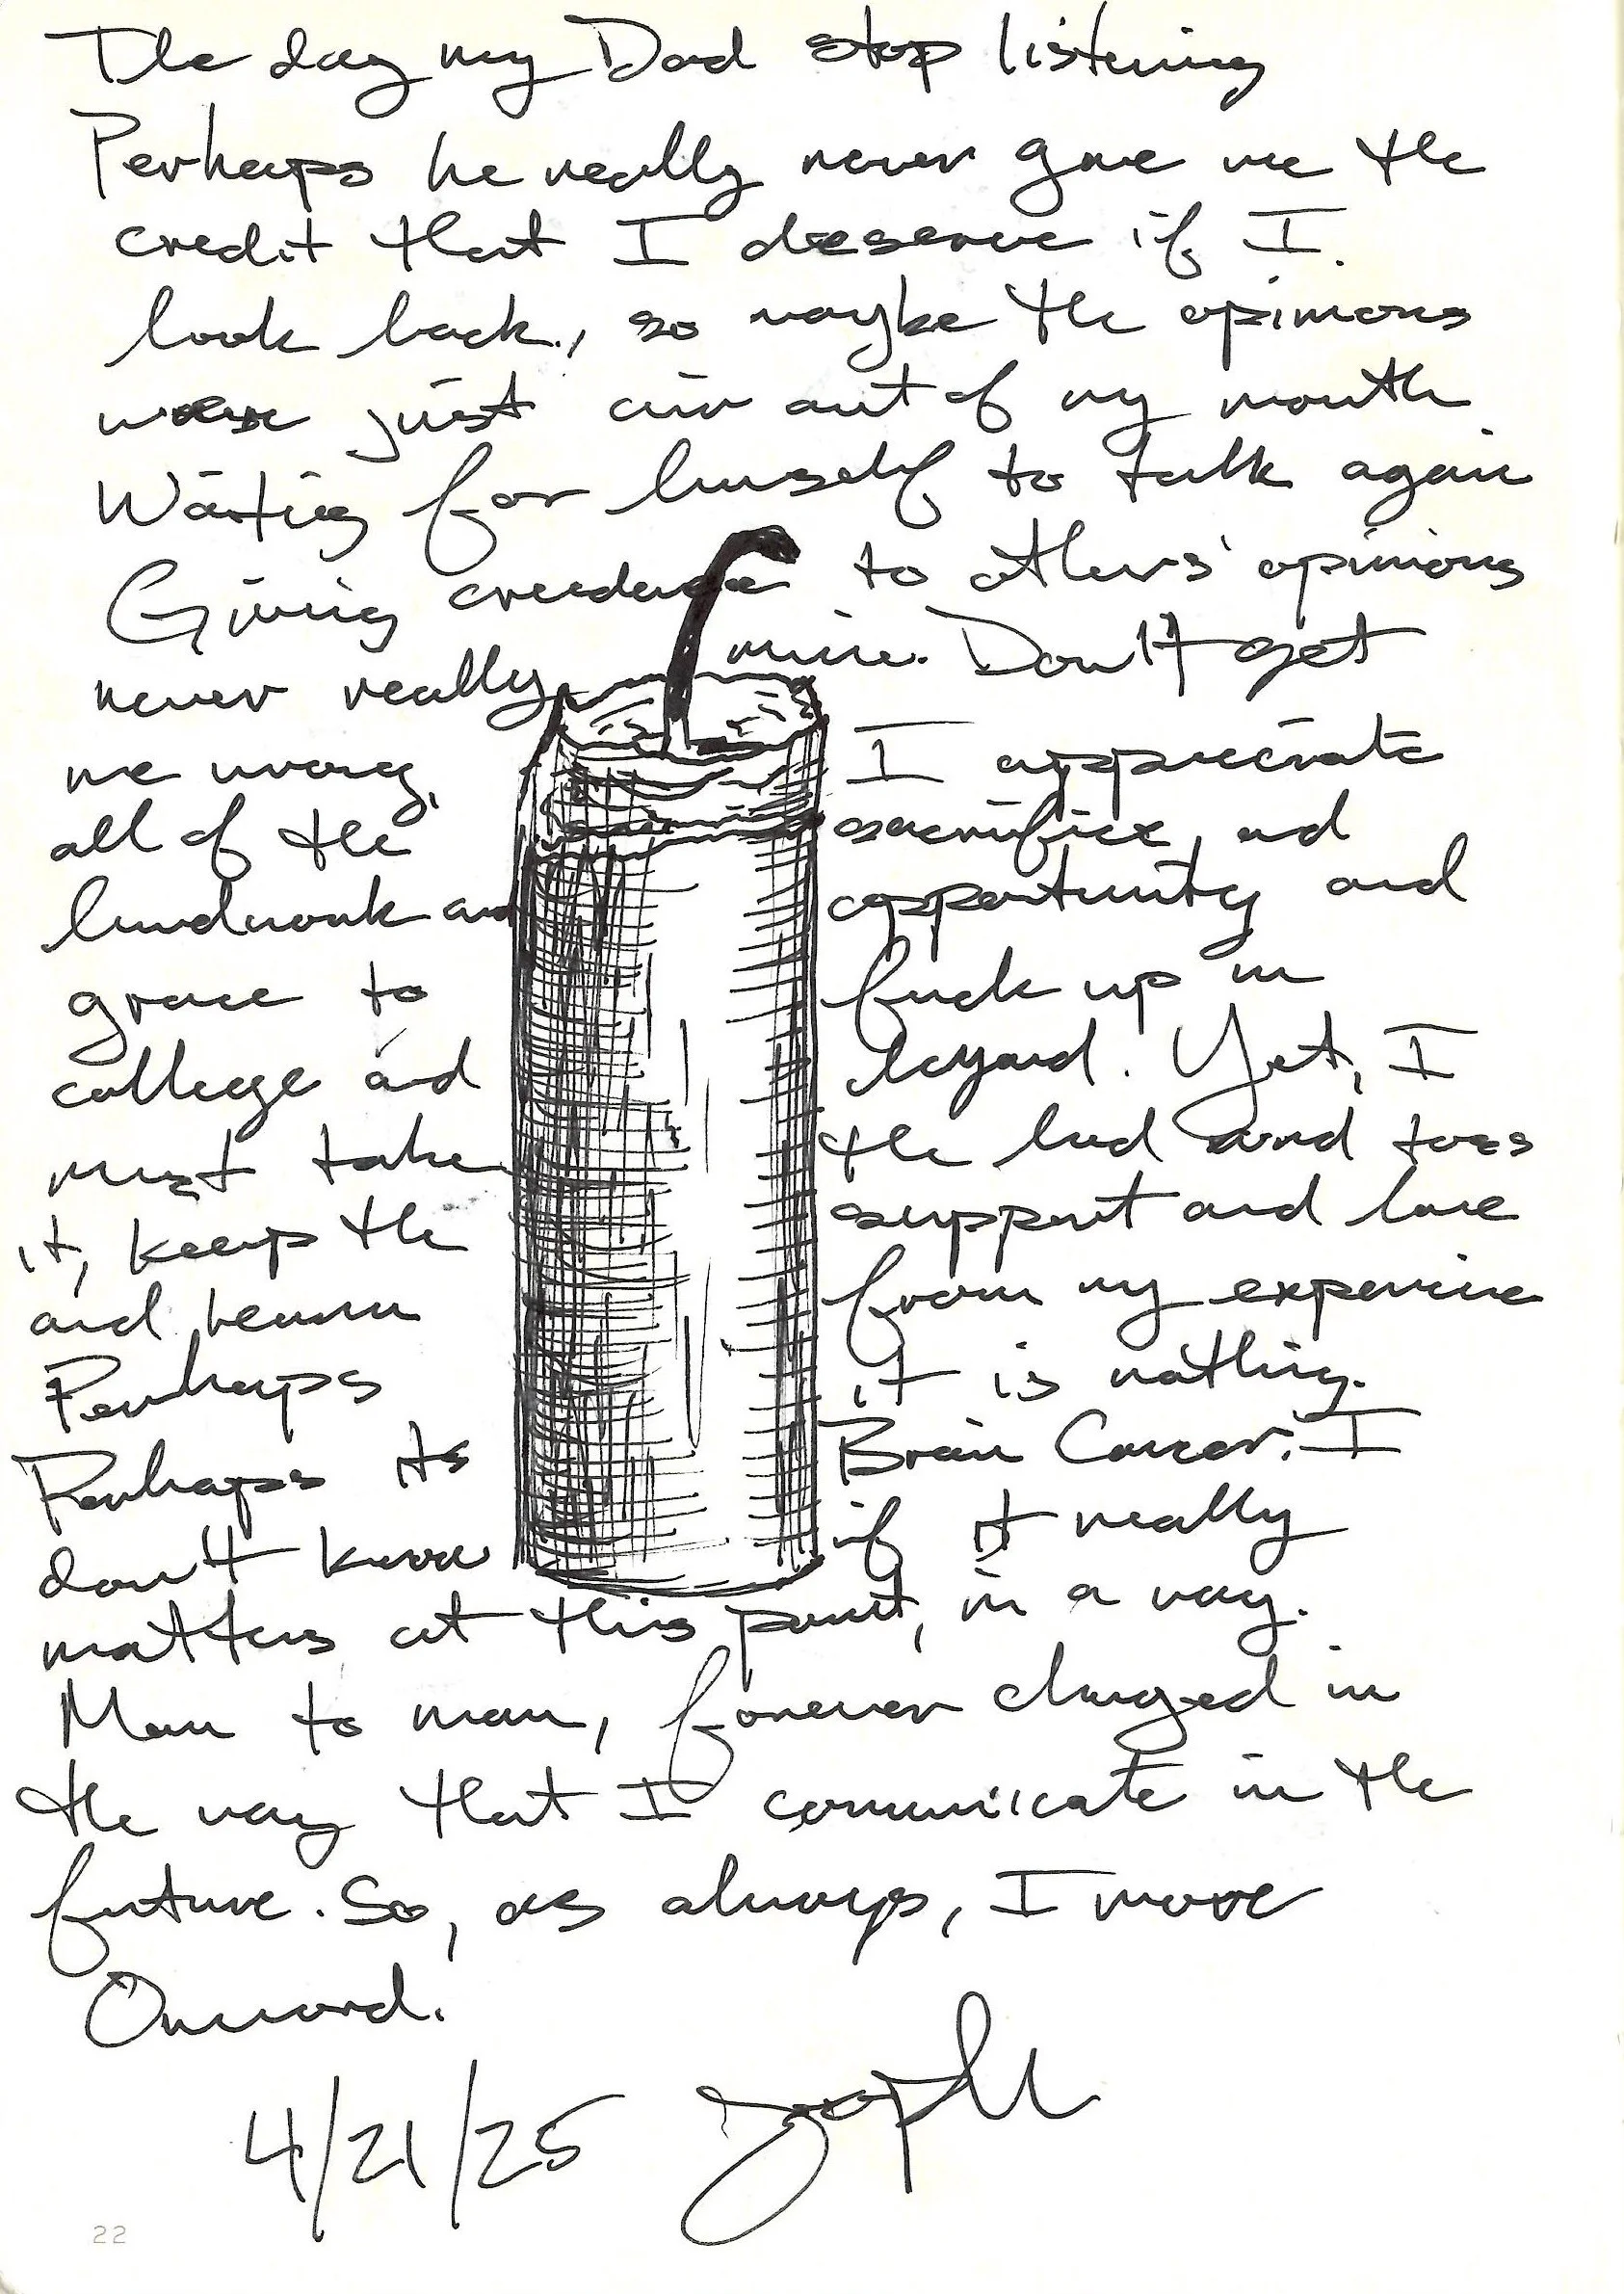 The day my Dad stop listening
Perhaps he really never gave me the
credit that I deserve if I
look back, so maybe the opinions
were just air out of my mouth
Waiting for himself to talk again
Giving creedance to others' opinions
never really mine. Don't get
me wrong, I appreciate
all of the sacrifice, and
hardwork and opportunity and
grace to fuck up in
college and beyond. Yet, I
must take the and toss
it, keep the support and love
and learn from my experience
Perhaps it is nothing.
Perhaps its Brain Cancer. I
don't know if it really
matters at this point, in a way.
Man to man, forever changed in
the way that I comunicate in the
future. So, as always, I move
Onward.
4/21/25 Joseph
22